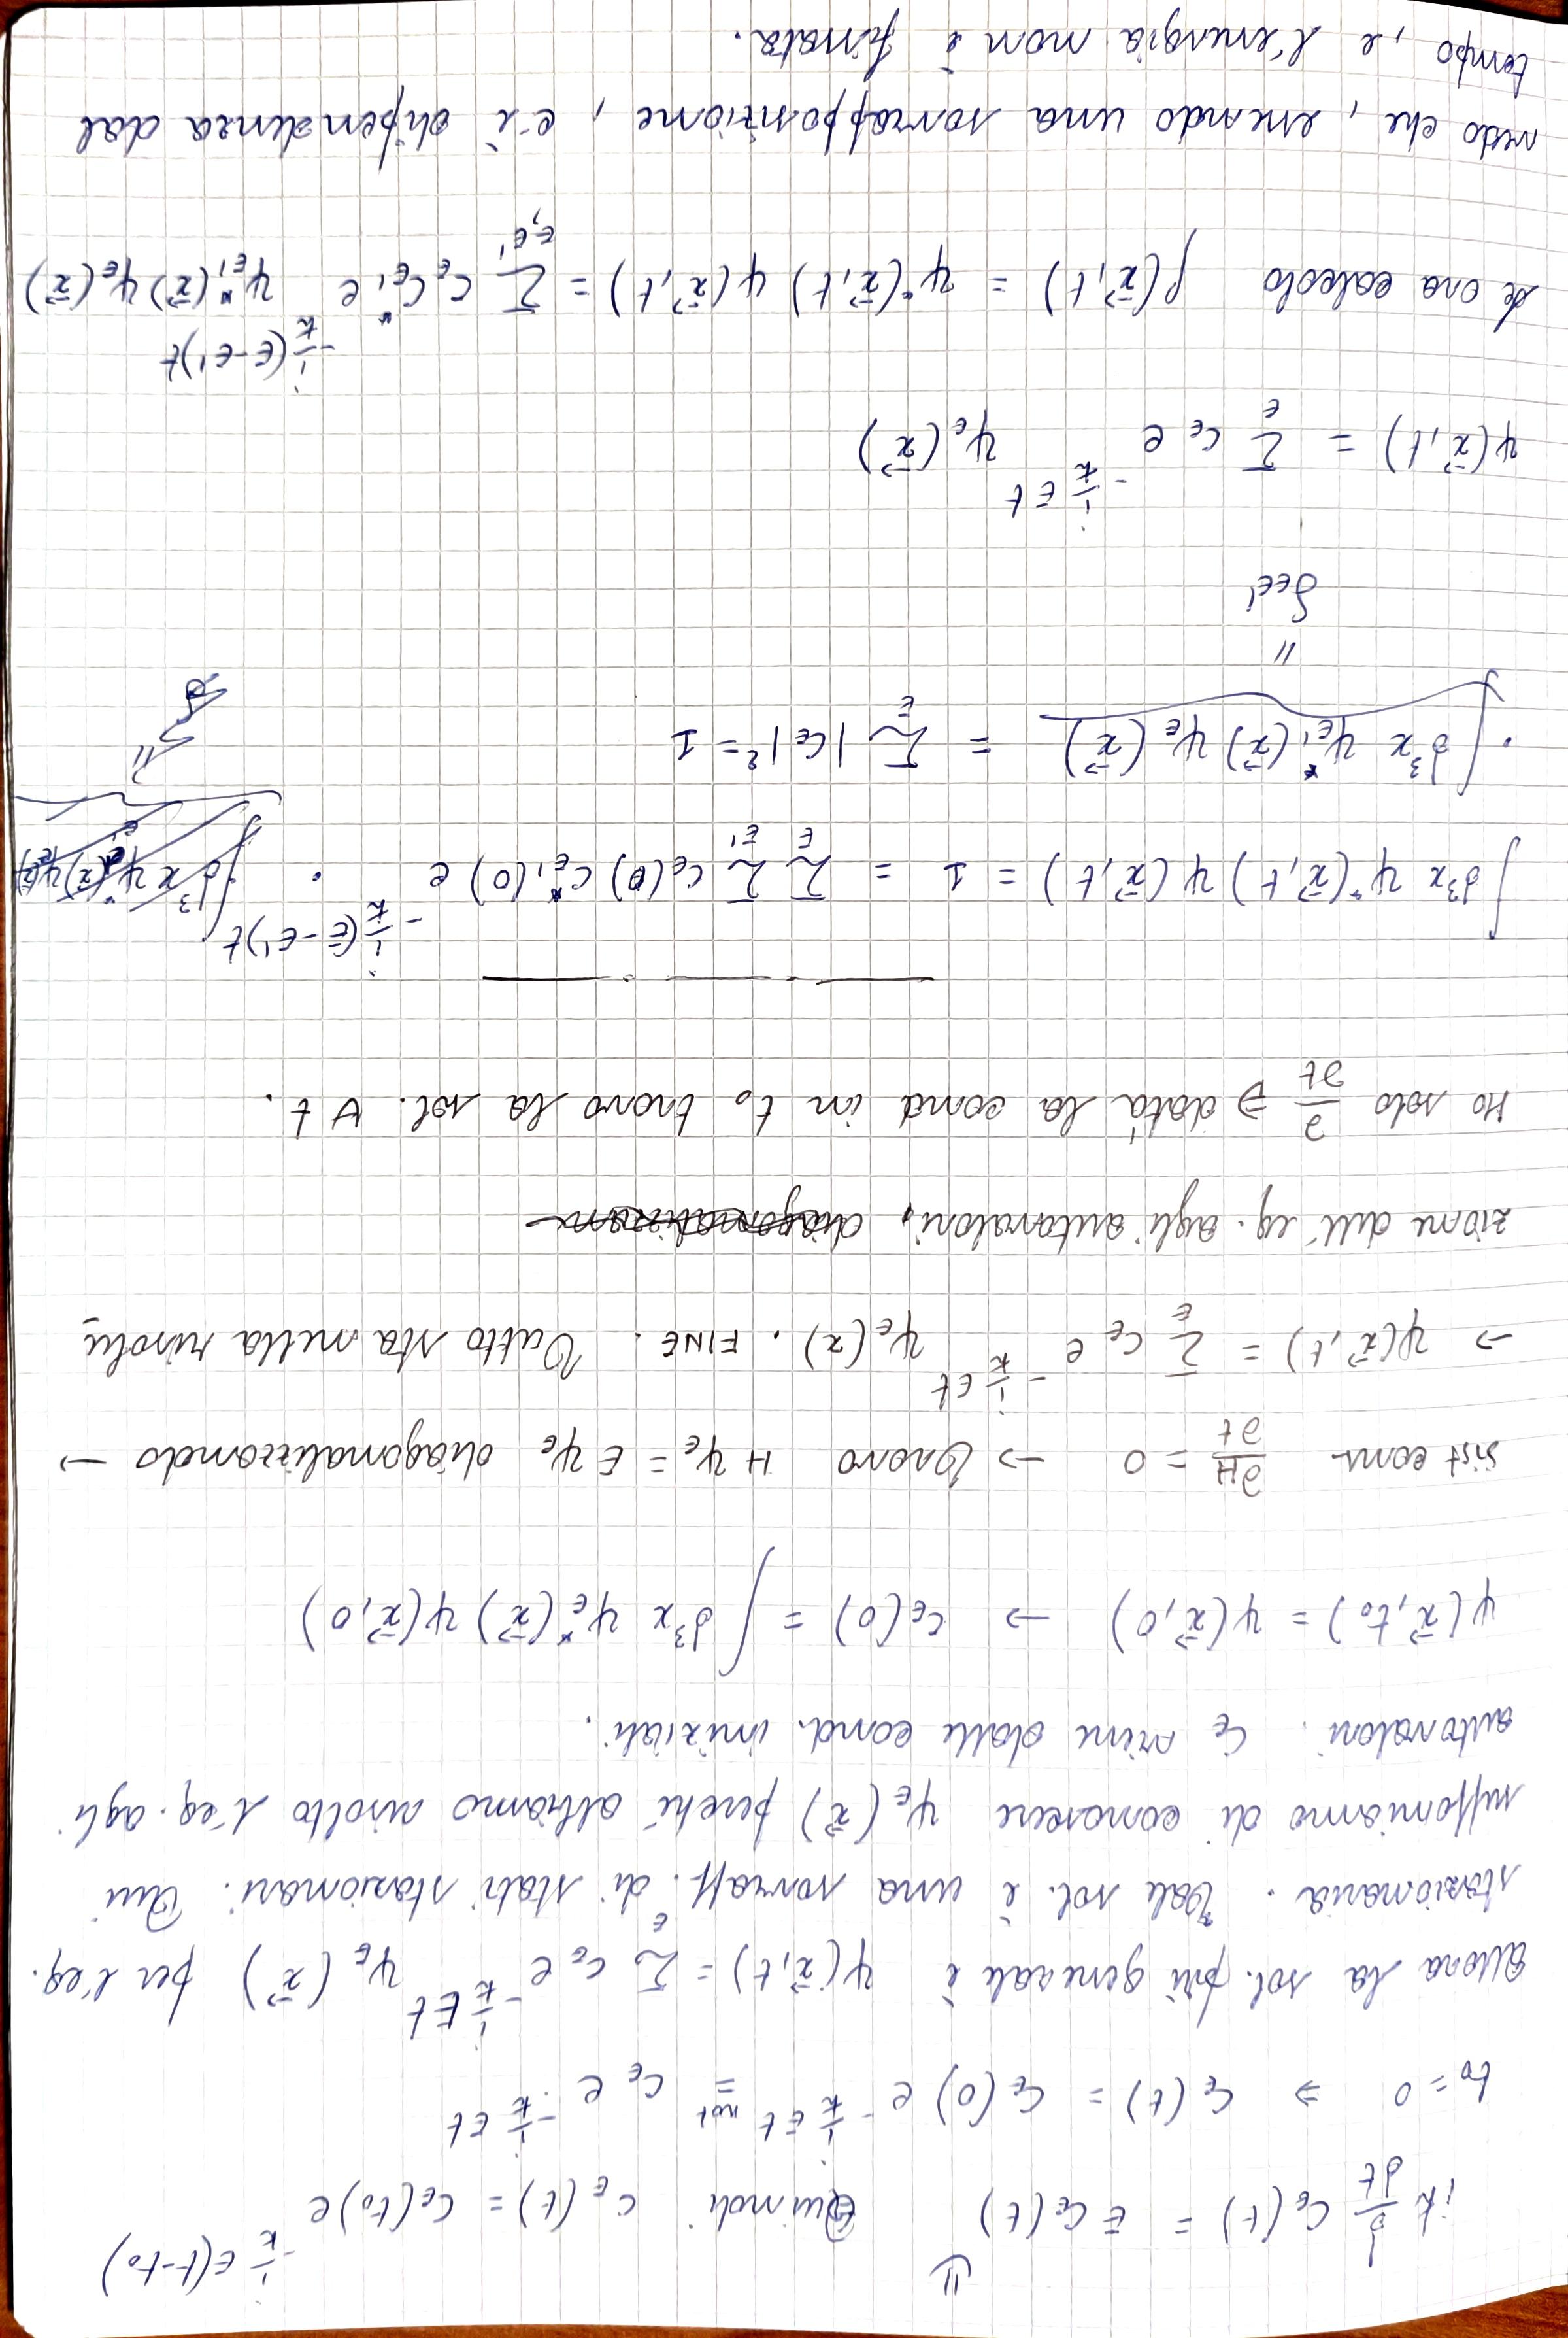 ⇓
iħ d/dt C_E(t) = E C_E(t) Quindi C_E(t) = C_E(t₀) e^{-i/ħ E(t-t₀)}
t₀=0 ⇒ C_E(t) = C_E(0) e^{-i/ħ Et} =^{not} C_E e^{-i/ħ Et}
Allora la sol. più generale è ψ(x⃗,t) = Σ_E C_E e^{-i/ħ Et} ψ_E(x⃗) per l'eq.
stazionaria. Tale sol. è una sovrapp. di stati stazionari. Qui
supponiamo di conoscere ψ_E(x⃗) perché abbiamo risolto l'eq. agli
autovalori. C_E viene dalle cond. iniziali.
ψ(x⃗,t₀) = ψ(x⃗,0) → C_E(0) = ∫d³x ψ_E*(x⃗) ψ(x⃗,0)
Sist cons ∂H/∂t = 0 → Trovo Hψ_E = Eψ_E diagonalizzando →
→ ψ(x⃗,t) = Σ_E C_E e^{-i/ħ Et} ψ_E(x). FINE. Tutto sta nella risolu
zione dell'eq. agli autovalori, diagonalizzan
Ho solo ∂/∂t ⇒ data la cond in t₀ trovo la sol. ∀t.
∫d³x ψ*(x⃗,t) ψ(x⃗,t) = 1 = Σ_E Σ_E' C_E(0) C*_E'(0) e^{-i/ħ(E-E')t} ·
· ∫d³x ψ*_E'(x⃗) ψ_E(x⃗) = Σ_E |C_E|² = 1
=
δ_EE'
ψ(x⃗,t) = Σ_E C_E e^{-i/ħ Et} ψ_E(x⃗)
Se ora calcolo ρ(x⃗,t) = ψ*(x⃗,t) ψ(x⃗,t) = Σ_{E,E'} C_E C*_E' e^{-i/ħ(E-E')t} ψ*_E'(x⃗) ψ_E(x⃗)
vedo che, essendo una sovrapposizione, c'è dipendenza dal
tempo, e l'energia non è fissata.